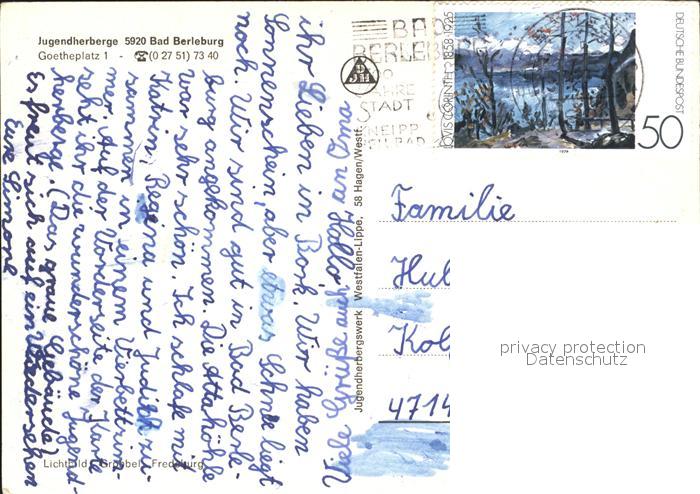 Jugendherberge 5920 Bad Berleburg
Goetheplatz 1 - ☎ (0 27 51) 73 40
ihr Lieben in Bork. Wir haben
Sonnenschein, aber etwas Schnee liegt
noch. Wir sind gut in Bad Berle-
burg angekommen. Die Attahöhle
war sehr schön. Ich schlafe mit
Katrin, Regina und Judith zu-
sammen in einem Vierbettzim-
mer. Auf der Vorderseite der Karte
seht ihr die wunderschöne Jugend-
herberge. (Das graue Gebäude)
Es freut sich auf ein Wiedersehen
Eure Simone
Viele Grüße auch Hallo an Oma
Lichtbild: Grobbel, Fredeburg
Jugendherbergswerk Westfalen-Lippe, 58 Hagen/Westf.
BAD
BERLE
JAHRE
STADT
KNEIPP
HEILBAD
DJH
LOVIS CORINTH 1858-1925
DEUTSCHE BUNDESPOST
50
1978
Familie
Hul
Kol
4714
privacy protection
Datenschutz